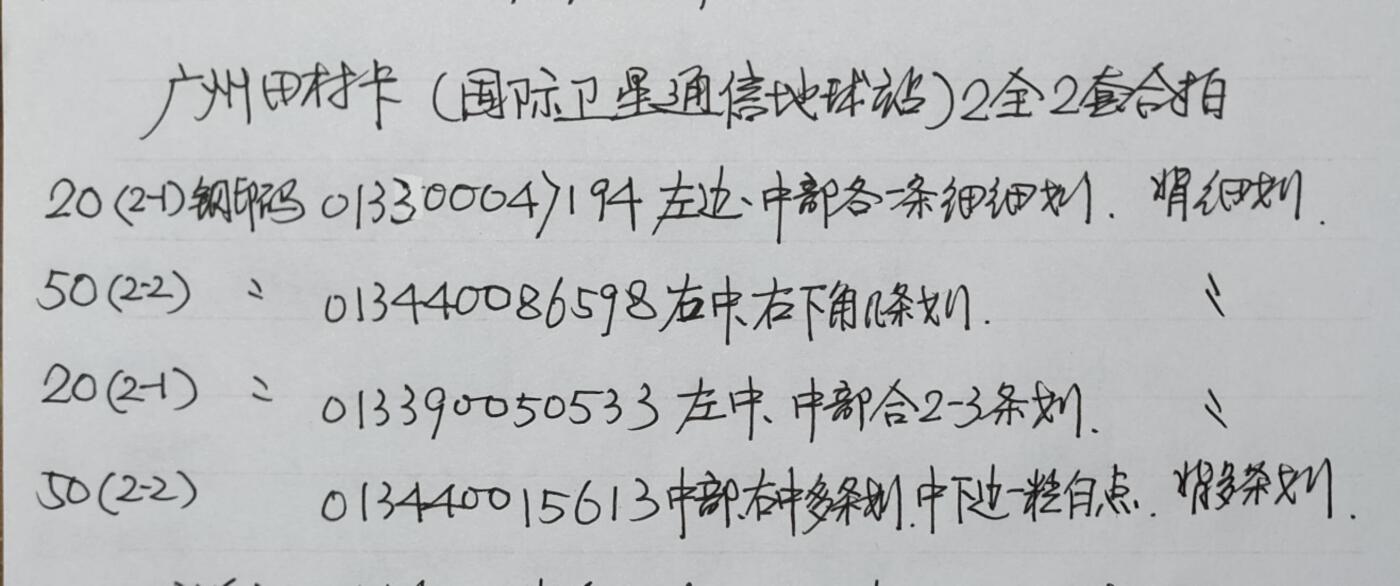 广州田村卡(国际卫星通信地球站)2全2套合拍
20(2-1)钢印码 013300047194 左边、中部各一条细细划. 背细划.
50(2-2) 〃 013440086598 右中、右下角几条划. 〃
20(2-1) 〃 013390050533 左中、中部合2-3条划. 〃
50(2-2) 013440015613 中部、右中多条划.中下边一粒白点. 背多条划.